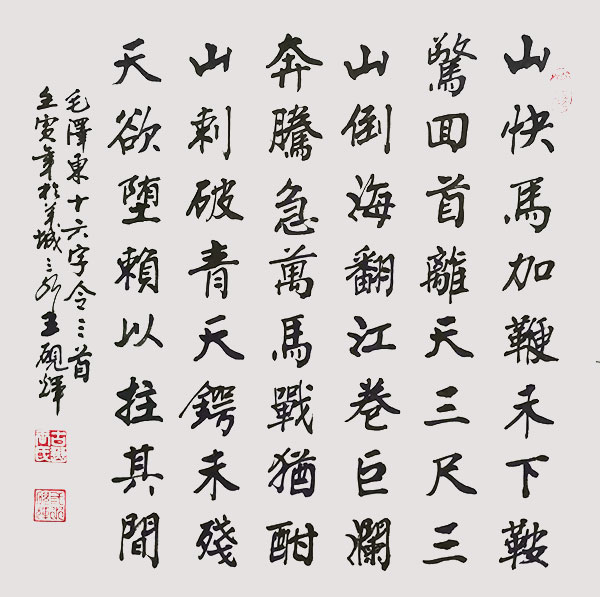 山快馬加鞭未下鞍
驚回首離天三尺三
山倒海翻江卷巨瀾
奔騰急萬馬戰猶酣
山刺破青天鍔未殘
天欲墮賴以拄其間
毛澤東十六字令三首
壬寅年於羊城王硯輝